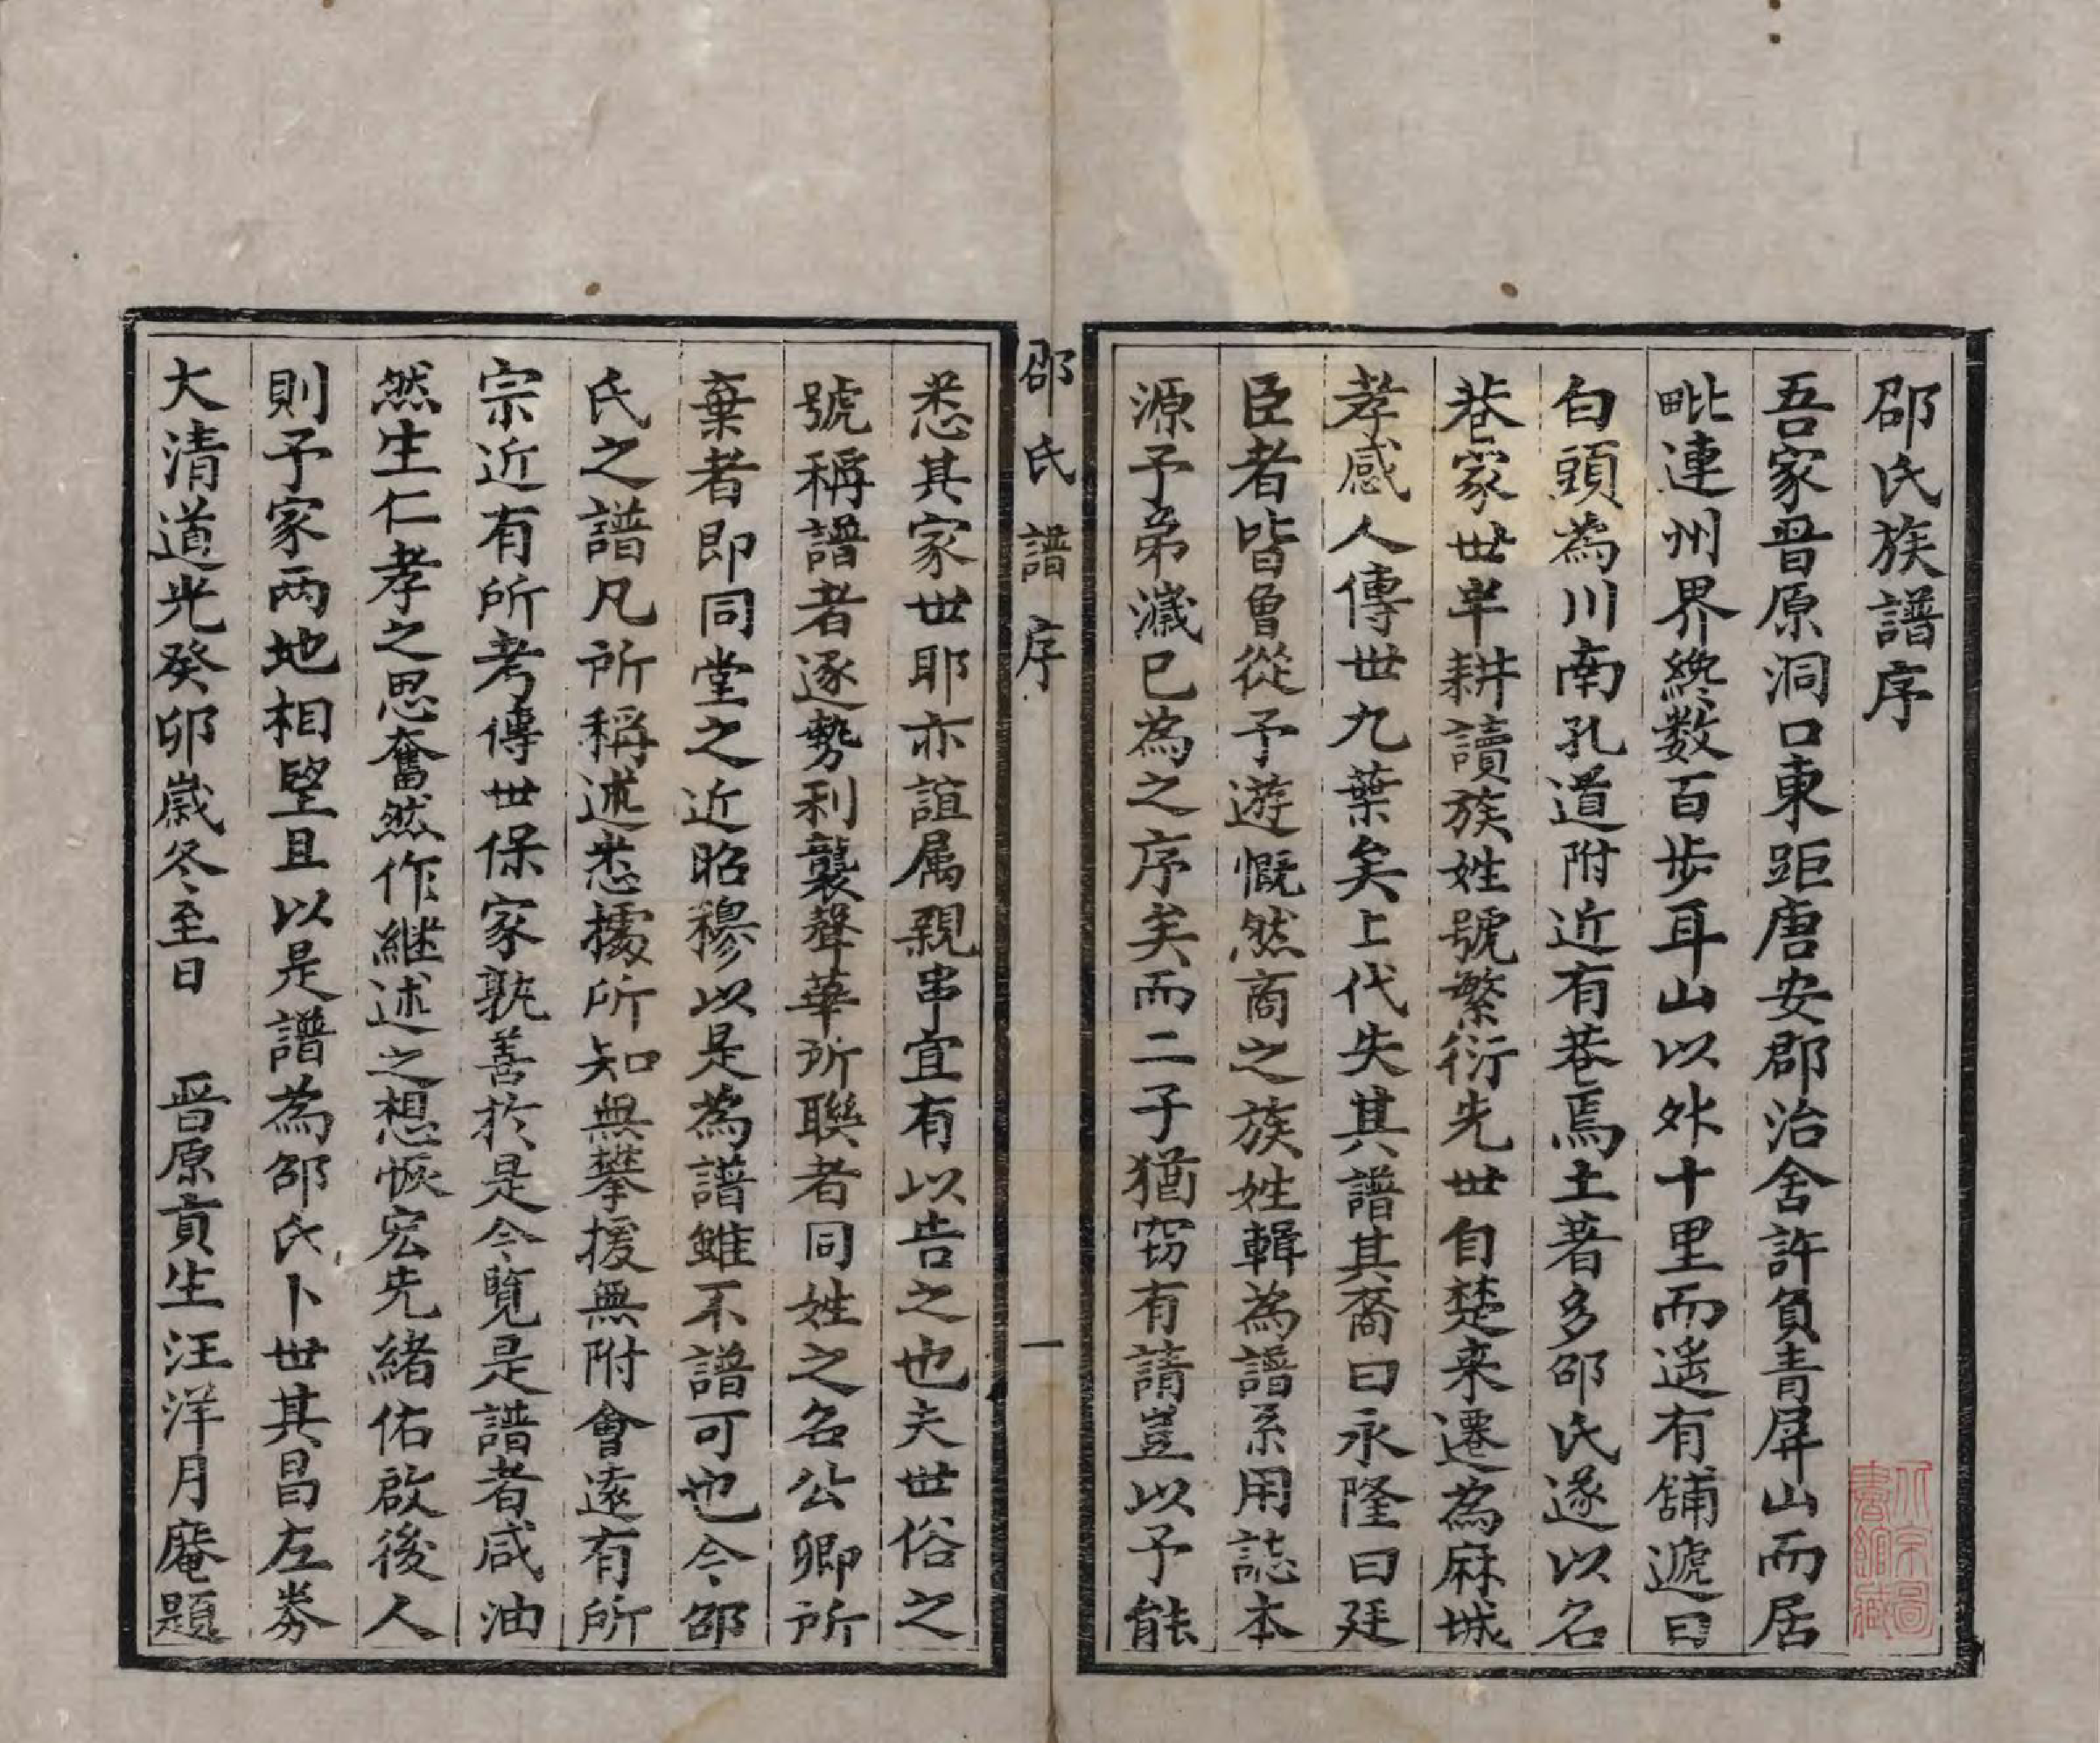 邵氏族譜序
吾家晉原洞口東距唐安郡治舍許負青屏山而居
毗連州界纔数百步耳山以外十里而遙有鋪遞曰
白頭為川南孔道附近有巷焉土著多邵氏遂以名
巷家世半耕讀族姓號繁衍先世自楚来遷為麻城
孝感人傳世九葉矣上代失其譜其裔曰永隆曰廷
臣者皆曾從予遊慨然商之族姓輯為譜系用誌本
源予弟瀛已為之序矣而二子猶窃有請豈以予能
邵氏譜序
一
悉其家世耶亦誼属親串宜有以告之也夫世俗之
號稱譜者逐勢利襲聲華所聯者同姓之名公卿所
棄者即同堂之近昭穆以是為譜雖不譜可也今邵
氏之譜凡所稱述悉據所知無攀援無附會遠有所
宗近有所考傳世保家孰善於是今覽是譜者咸油
然生仁孝之思奮然作継述之想恢宏先緒佑啟後人
則予家两地相望且以是譜為邵氏卜世其昌左券
大清道光癸卯歲冬至日　晉原貢生汪洋月庵題